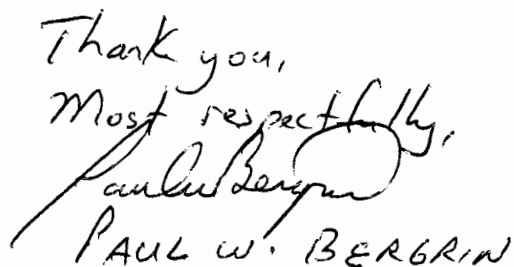 Thank you,
Most respectfully,
Paul W Bergrin
PAUL W. BERGRIN